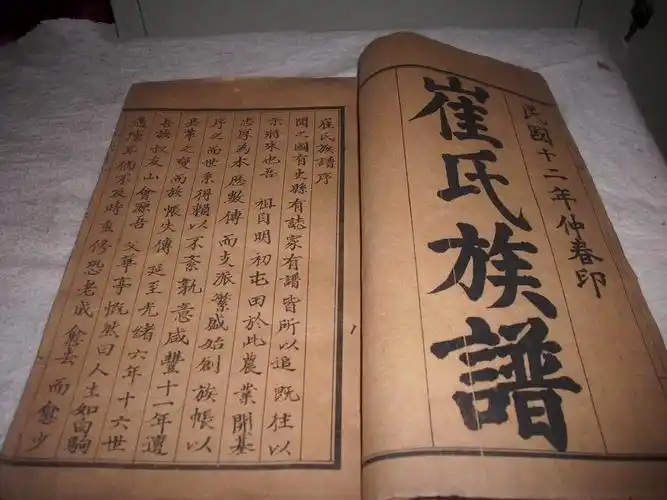 民國十二年仲春印
崔氏族譜
崔氏族譜序
聞之國有史縣有誌家有譜皆所以追既往以
示將來也吾 祖自明初屯田於此農業開基
志厚為本歷數傳而支派繁盛始創族帳以
序之而世系得賴以不紊孰意咸豐十一年遭
兵革之變而族帳失傳延至光緒六年十六世
吾族叔友山會源吾父華亭慨然曰人生如白駒
過隙耳倘不及時重修恐老成愈去而愈少